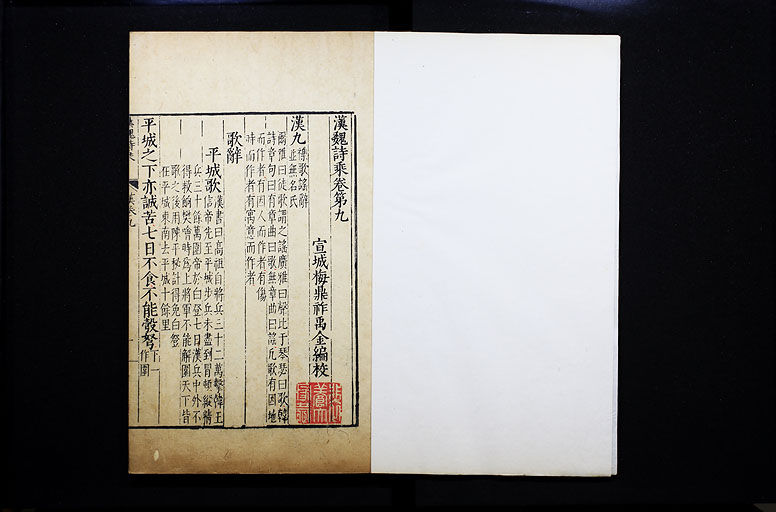 漢魏詩乘卷第九
宣城梅鼎祚禹金編校
漢九
雜歌謡辭
並無名氏
爾雅曰徒歌謂之謡廣雅曰聲比于琴瑟曰歌韓
詩章句曰有章曲曰歌無章曲曰謡凡歌有因地
而作者有因人而作者有傷
時而作者有寓意而作者
歌辭
平城歌
漢書曰高祖自將兵三十二萬擊韓王
信帝先至平城步兵未盡到冒頓縱精
兵三十餘萬圍帝於白登七日漢兵中外不
得救餉樊噲時爲上將軍不能解圍天下皆
歌之後用陳平秘計得免白登
在平城東南去平城十餘里
平城之下亦誠苦七日不食不能彀弩
下一
作圍
漢魏詩乘
漢卷九
一